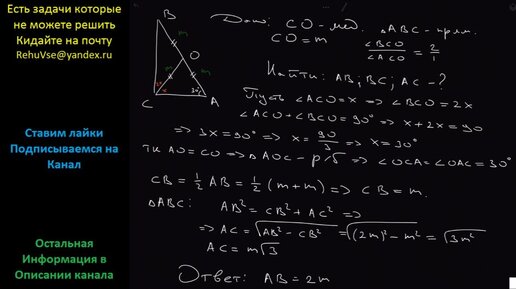 Есть задачи которые
не можете решить
Кидайте на почту
RehuVse@yandex.ru
Ставим лайки
Подписываемся на
Канал
Остальная
Информация в
Описании канала
B
m
O
m
m
2x
x
30°
C
A
Дано: CO - мед. △ABC - прям.
CO = m
∠BCO / ∠ACO = 2/1
Найти: AB; BC; AC - ?
Пусть ∠ACO = x ⇒ ∠BCO = 2x
∠ACO + ∠BCO = 90° ⇒ x + 2x = 90
⇒ 3x = 90° ⇒ x = 90/3 ⇒ x = 30°
т.к AO = CO ⇒ △AOC - р/б ⇒ ∠OCA = ∠OAC = 30°
CB = 1/2 AB = 1/2 (m + m) ⇒ CB = m.
△ABC: AB² = CB² + AC² ⇒
⇒ AC = √(AB² - CB²) = √((2m)² - m²) = √(3m²)
AC = m√3
Ответ: AB = 2m